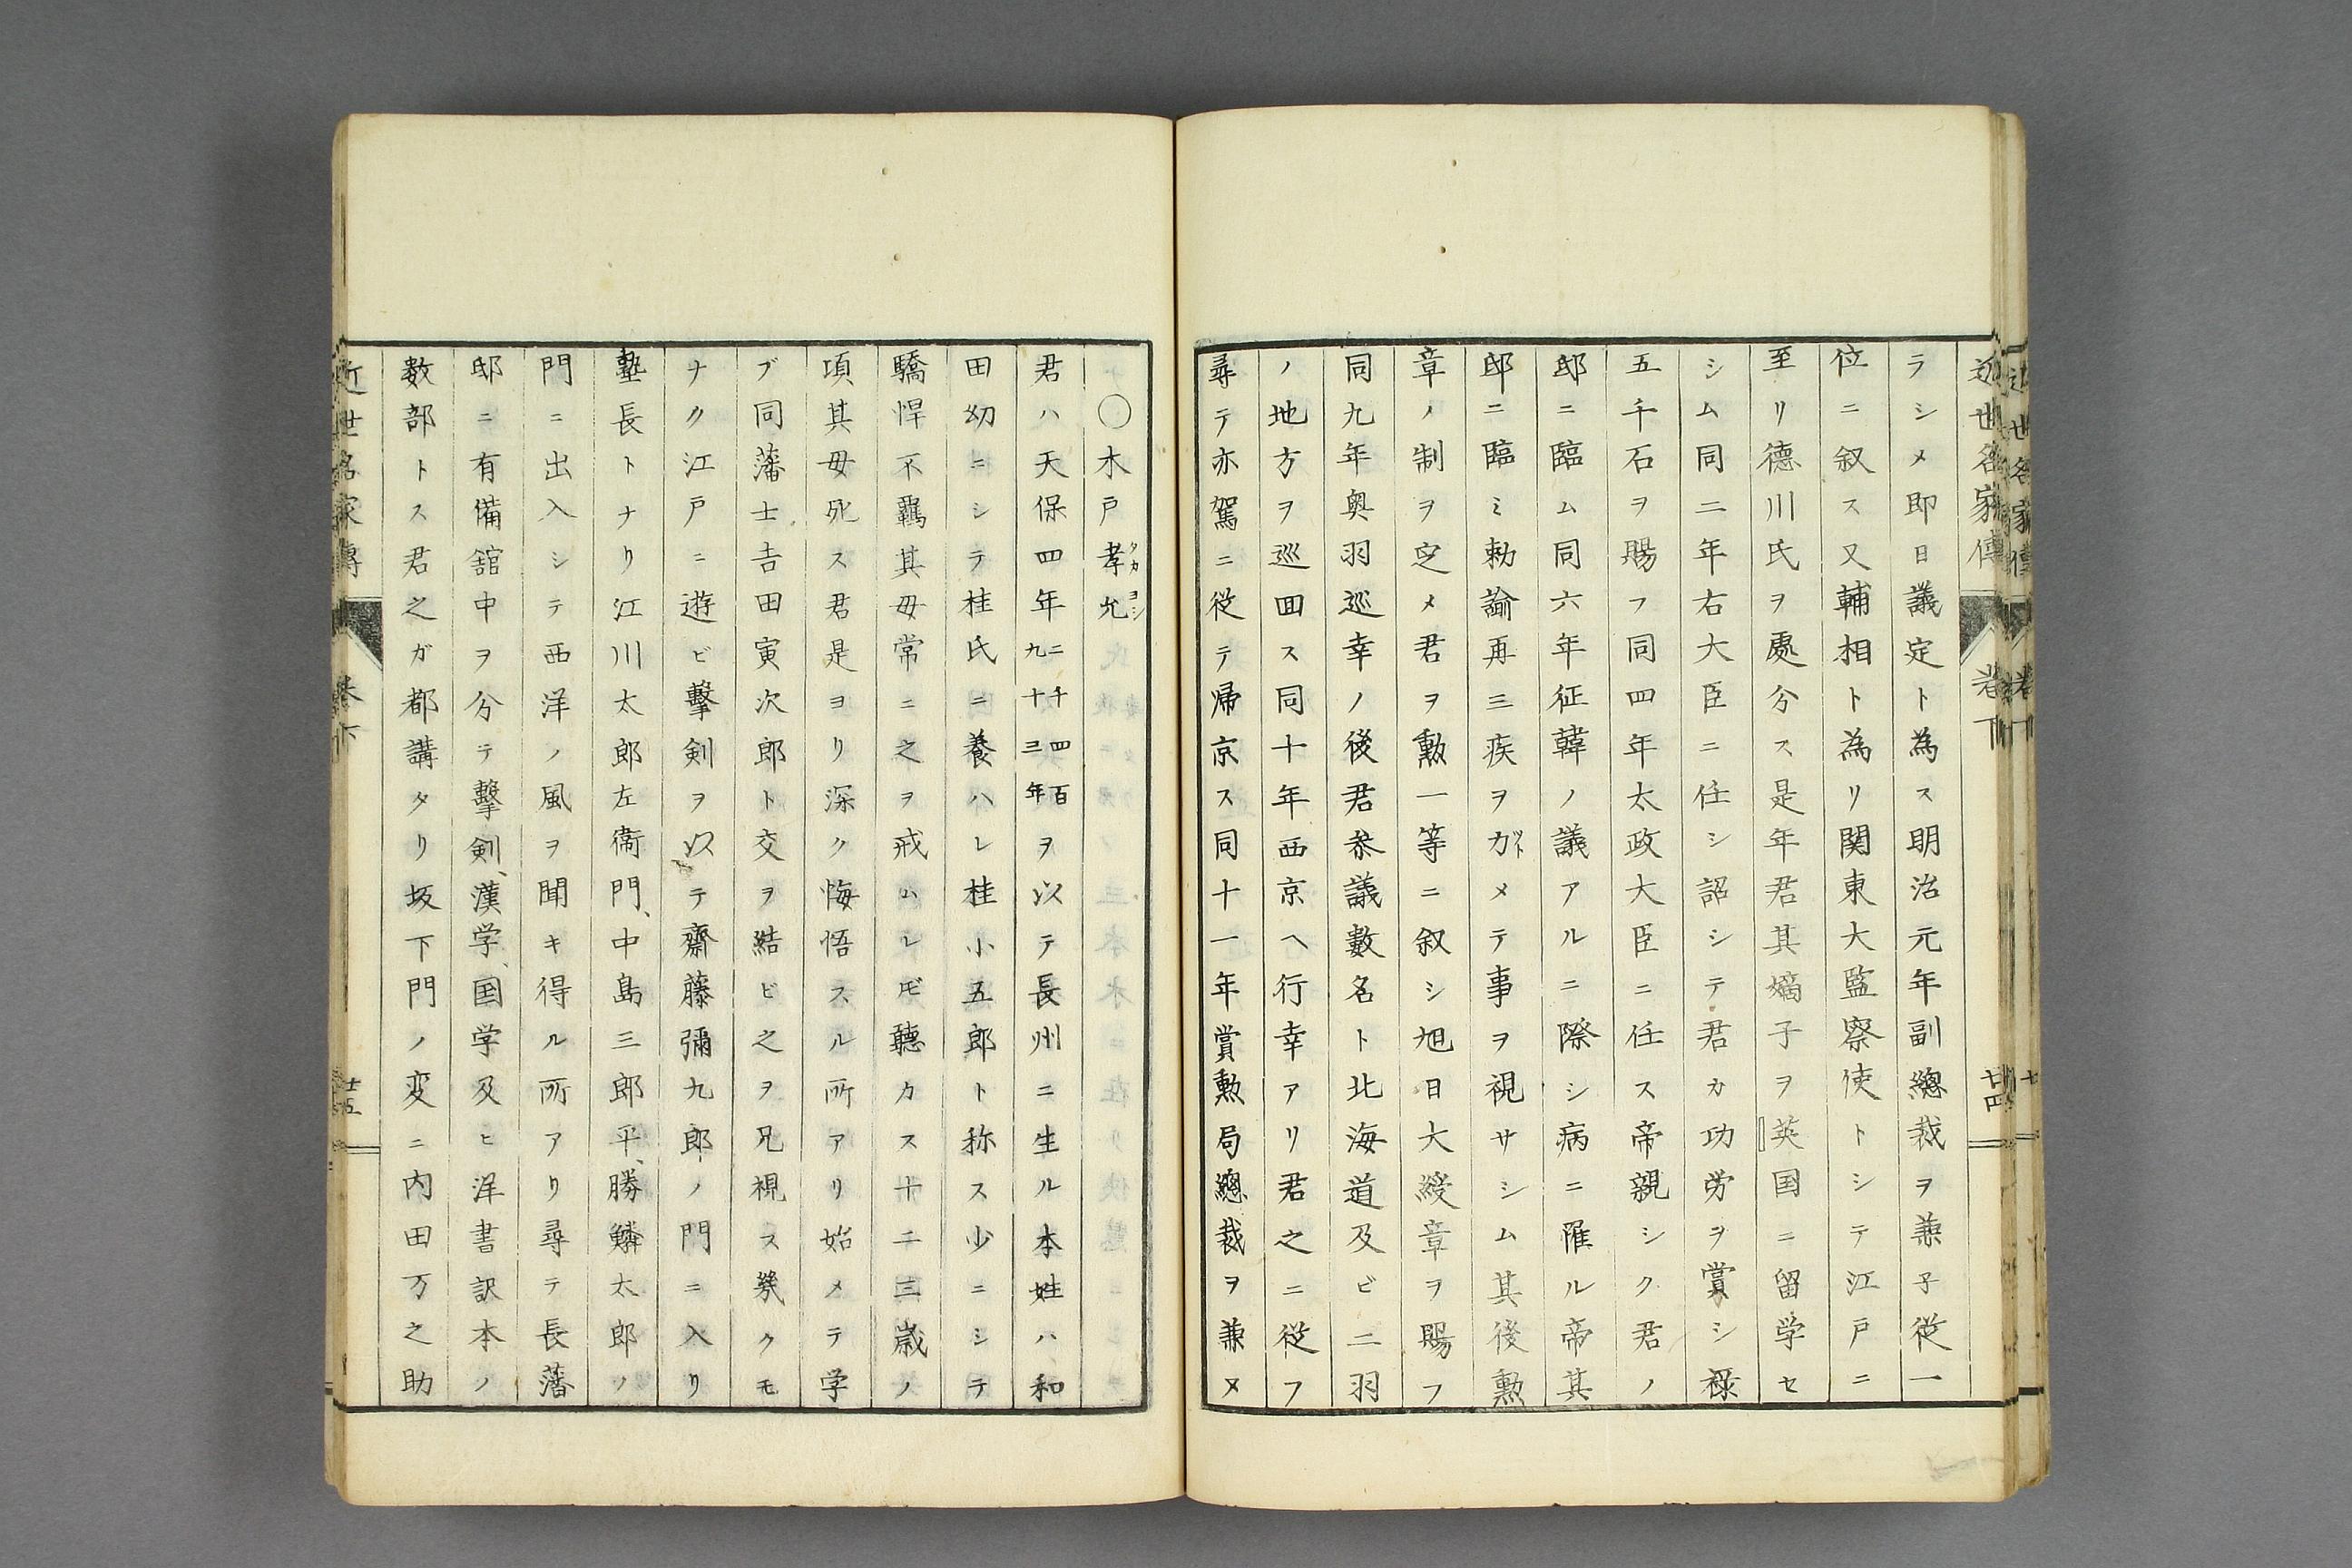 近世名家傳 卷下 廿四
ラシメ即日議定ト為ス明治元年副總裁ヲ兼子従一
位ニ叙ス又輔相ト為リ関東大監察使トシテ江戸ニ
至リ德川氏ヲ處分ス是年君其嫡子ヲ英国ニ留学セ
シム同二年右大臣ニ任シ詔シテ君カ功労ヲ賞シ禄
五千石ヲ賜フ同四年太政大臣ニ任ス帝親シク君ノ
邸ニ臨ム同六年征韓ノ議アルニ際シ病ニ罹ル帝其
邸ニ臨ミ勅諭再三疾ヲカメテ事ヲ視サシム其後勲
ツト
章ノ制ヲ定メ君ヲ勲一等ニ叙シ旭日大綬章ヲ賜フ
同九年奥羽巡幸ノ後君参議數名ト北海道及ビ二羽
ノ地方ヲ巡回ス同十年西京ヘ行幸アリ君之ニ従フ
尋テ亦駕ニ従テ帰京ス同十一年賞勲局總裁ヲ兼メ
〇木戸孝允
タカヨシ
君ハ天保四年二千四百九十三年ヲ以テ長州ニ生ル本姓ハ和
田幼ニシテ桂氏ニ養ハレ桂小五郎ト称ス少ニシテ
驕悍不羈其母常ニ之ヲ戒ムレ𪜈聽カス十二三歳ノ
項其母死ス君是ヨリ深ク悔悟スル所アリ始メテ学
ブ同藩士吉田寅次郎ト交ヲ結ビ之ヲ兄視ス幾クモ
ナク江戸ニ遊ビ擊剣ヲ以テ齋藤彌九郎ノ門ニ入リ
塾長トナリ江川太郎左衞門、中島三郎平、勝鱗太郎ノ
門ニ出入シテ西洋ノ風ヲ聞キ得ル所アリ尋テ長藩
邸ニ有備舘中ヲ分テ擊剣、漢学、国学及ヒ洋書訳本ノ
数部トス君之ガ都講タリ坂下門ノ変ニ内田万之助
近世名家傳 卷下 廿五